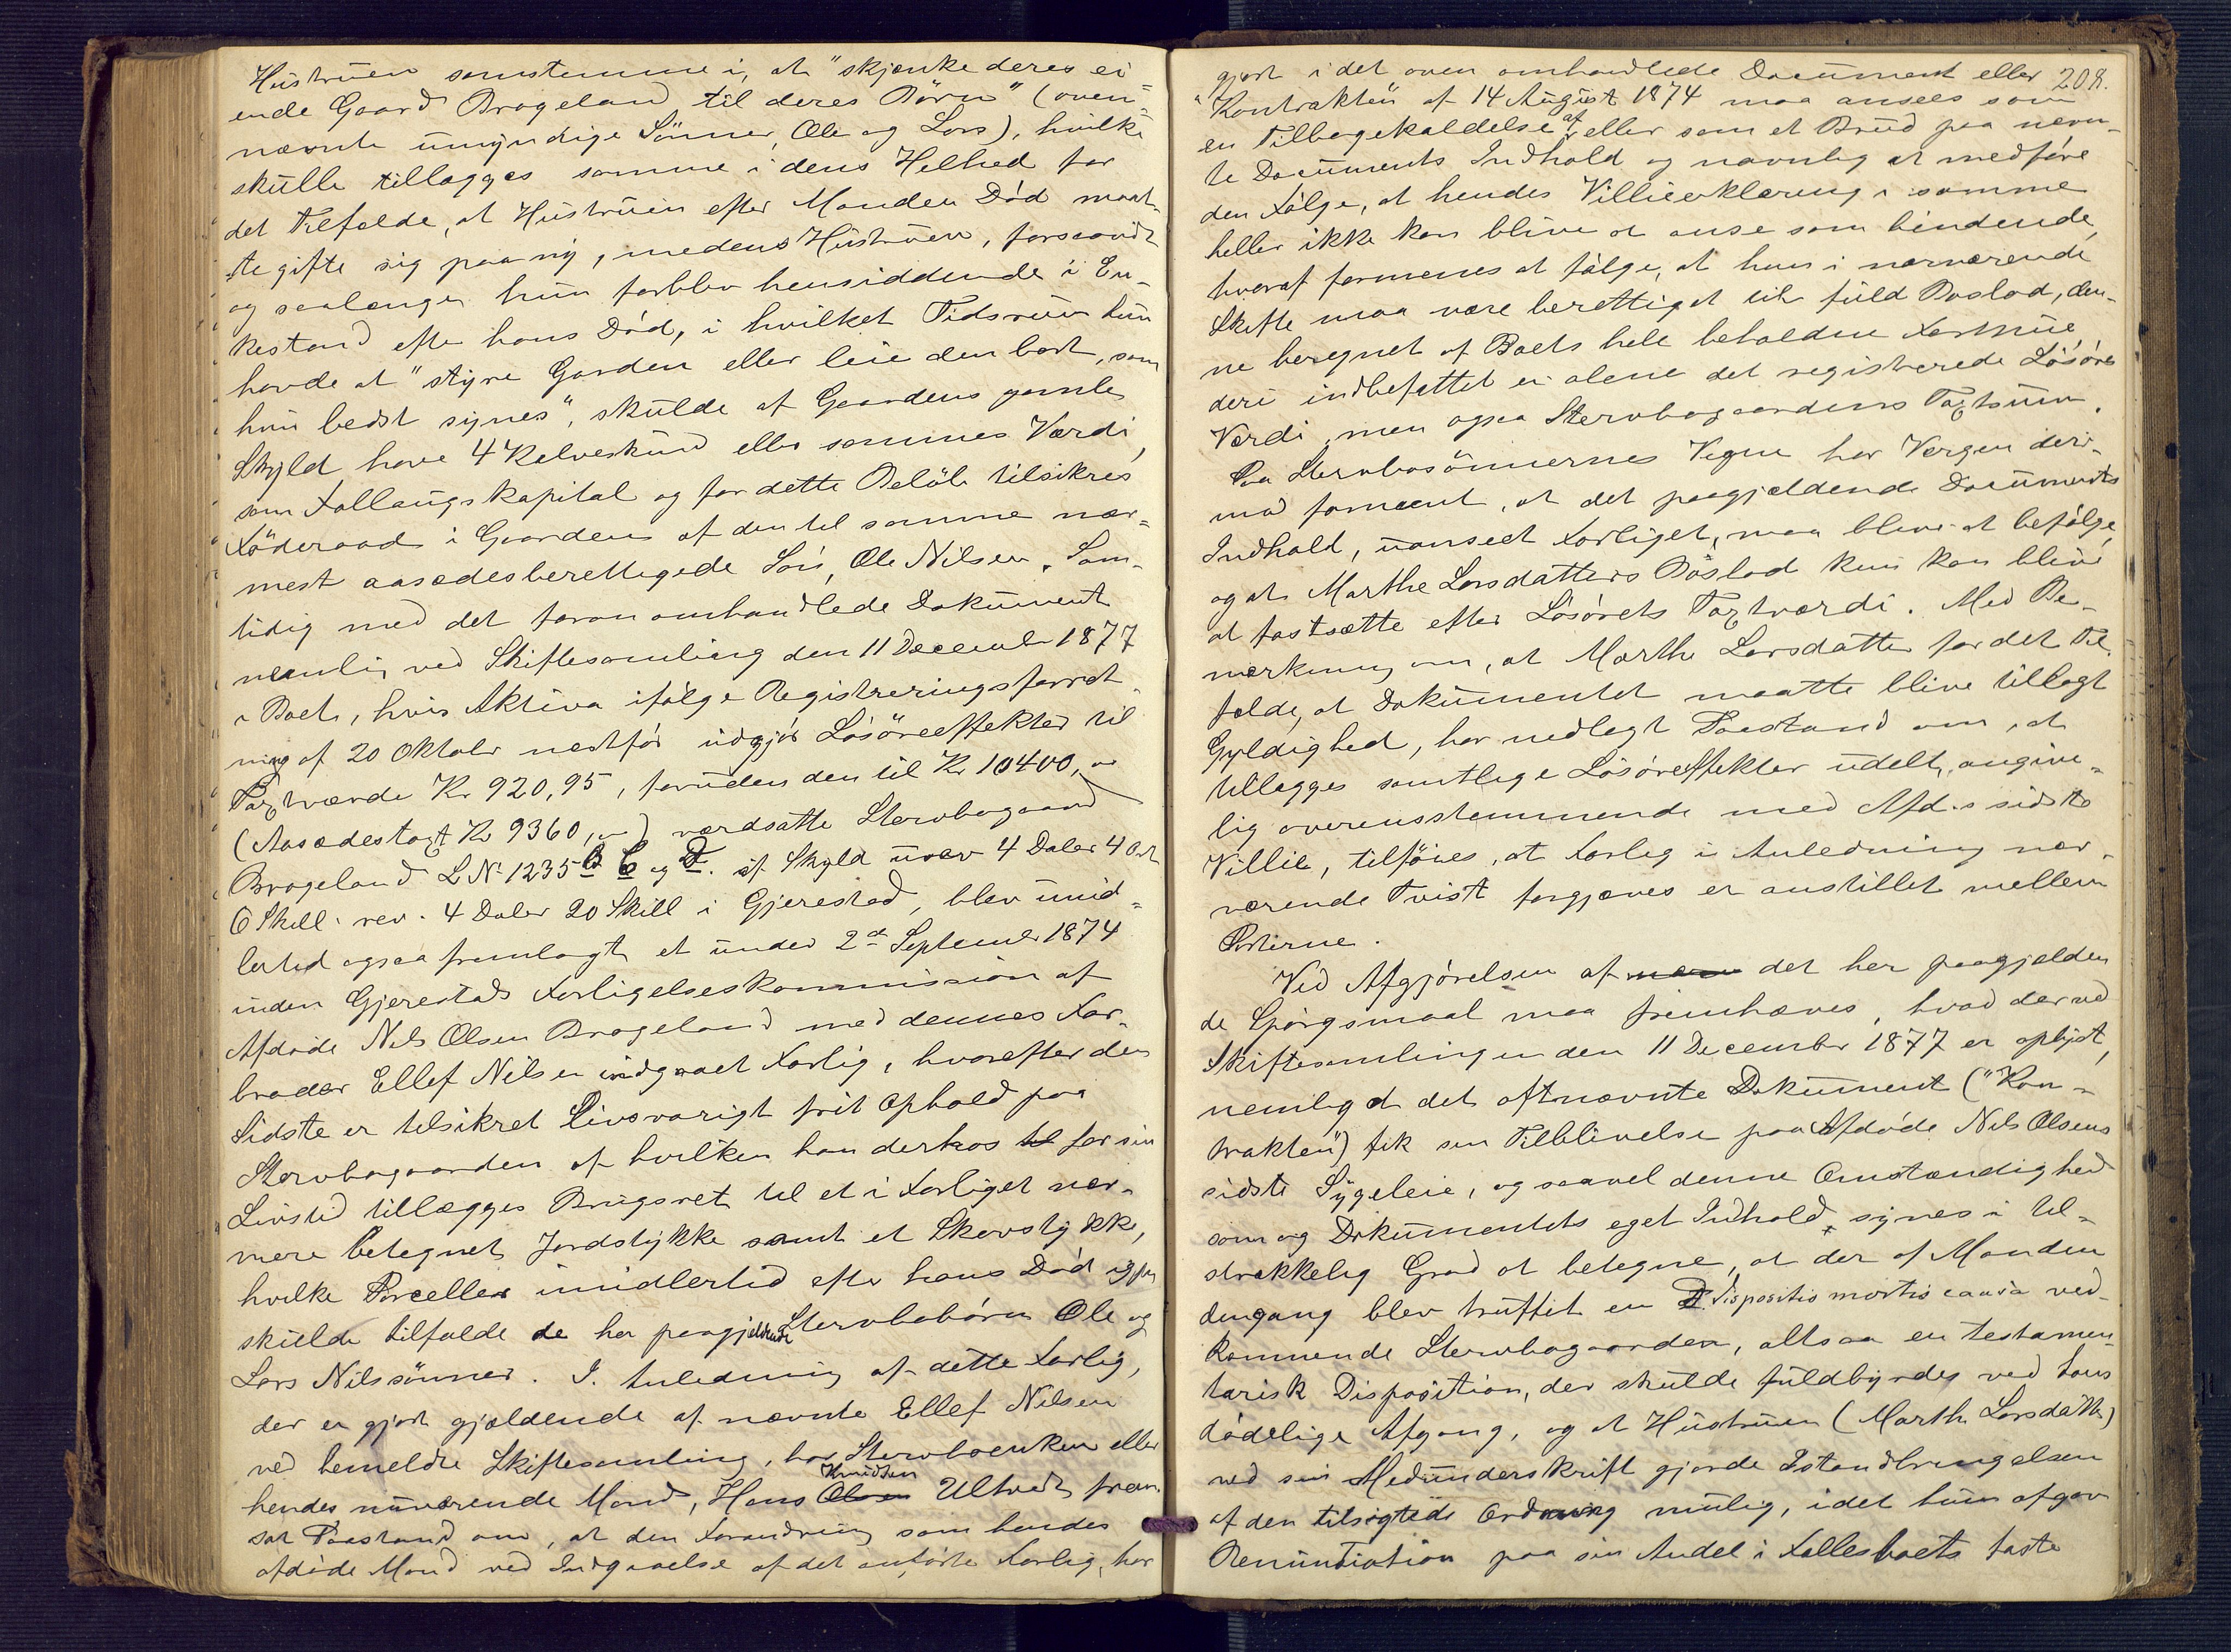 Hustruen samstemme i, at "skjænke deres ei-
" ende Gaard Brøgeland til deres Børn" (oven-
" nævnte umyndige Sønner, Ole og Lars), hvilke
" skulle tillægges samme i dens Helhed for
" det Tilfælde, at Hustruen efter Manden Død maat-
" te gifte sig paany, medens Hustruen, forsaavidt
" og saalænge hun forblev hensiddende i En-
" kestand efter hans Død, i hvilket Tidsrum hun
" havde at "styre Gaarden eller leie den bort, som
" hun bedst synes", skulde af Gaardens gamle
" Skyld have 4 Kalveskind eller sammes Værdi,
" som Follaugskapital og for dette Beløb tilsikres
" Føderaad i Gaarden af den til samme nær-
" mest aasædesberettigede Søn, Ole Nilsen. Sam-
" tidig med det foran omhandlede Dokument
" nemlig ved Skiftesamling den 11 December 1877
" i Boet, hvis Aktiva ifølge Registreringsforret-
" ning af 20 Oktober næstfør udgjør Løsøreeffekter til
" Taxtværde Kr 920,95, foruden den til Kr 10400,00
(Aasædestaxt Kr 9360,00) værdsatte Stervbogaard
Brøgeland L No 1235 B C og D. af Skyld urev 4 Daler 4 Ort
6 Skill. rev. 4 Daler 20 Skill i Gjerestad, blev imid-
lertid ogsaa fremlagt et under 2d September 1874
inden Gjerestads Forligelseskommission af
Afdøde Nils Olsen Brøgeland med dennes Far-
broder Ellef Nilsen indgaaet Forlig, hvorefter den
Sidste er tilsikret Livsvarigt frit Ophold paa
Stervbogaarden af hvilken han derhos til for sin
Livstid tillægges Brugsret til et i Forliget nær-
mere betegnet Jordstykke samt et Skovstykke,
hvilke Parceller imidlertid efter hans Død igjen
skulde tilfalde de her paagjældende Stervbobørn Ole og
Lars Nilssønner. I Anledning af dette Forlig,
der er gjort gjældende af nævnte Ellef Nilsen
ved bemeldte Skiftesamling, har Stervboenken eller
hendes nuværende Mand, Hans Olsen Knudsen Ultvedt frem-
sat Paastand om, at den Forandring som hendes
afdøde Mand ved Indgaaelse af det anførte Forlig, har
208.
gjort i det oven omhandlede Document eller
" Kontrakten af 14 August 1874 maa ansees som
en Tilbagekaldelse af eller som et Brud paa nævn-
te Documents Indhold og navnlig at medføre
den Følge, at hendes Villieerklæring i samme
heller ikke kan blive at anse som bindende,
hvoraf formenes at følge, at hun i nærværende
Skifte maa være berettiget til fuld Boslod, den-
ne beregnet af Boets hele beholdne Formue
deri indbefattet ei alene det registrerede Løsøres
Værdi, men ogsaa Stervbogaardens Taxtsum.
Paa Stervbosønnernes Vegne har Vergen deri-
mod formeent, at det paagjældende Documents
Indhold, uanseet Forliget, maa blive at befølge,
og at Marthe Larsdatters Boslod kun kan blive
at fastsætte efter Løsørets Taxtværdi. Med Be-
mærkning om, at Marthe Larsdatter for det Til-
fælde, at Dokumentet maatte blive tillagt
Gyldighed, har nedlagt Paastand om, at
tillægges samtlige Løsøreffekter udelt, angive-
lig overensstemmende med Afd.s sidste
Villie, tilføies, at Forlig i Anledning nær-
værende Tvist forgjæves er anstillet mellem
Parterne.
Ved Afgjørelsen af det her paagjælden
de Spørgsmaal maa fremhæves, hvad der ved
Skiftesamlingen den 11 December 1877 er oplyst,
nemlig at det oftnævnte Dokument ("Kon-
trakten") fik sin Tilblivelse paa Afdøde Nils Olsens
sidste Sygeleie, og saavel denne Omstændighed
som og Dokumentets eget Indhold, synes i til-
strækkelig Grad at betegne, at der af Manden
dengang blev truffet en Dispositio mortis causa ved-
kommende Stervbogaarden, altsaa en testamen-
tarisk Disposition, der skulde fuldbyrdes ved hans
dødelige Afgang, og at Hustruen (Marthe Larsdatter)
ved sin Medunderskrift gjorde Istandbringelsen
af den tilsigtede Ordning mulig, idet hun afgav
Renuntiation paa sin Andel i Fællesboets faste